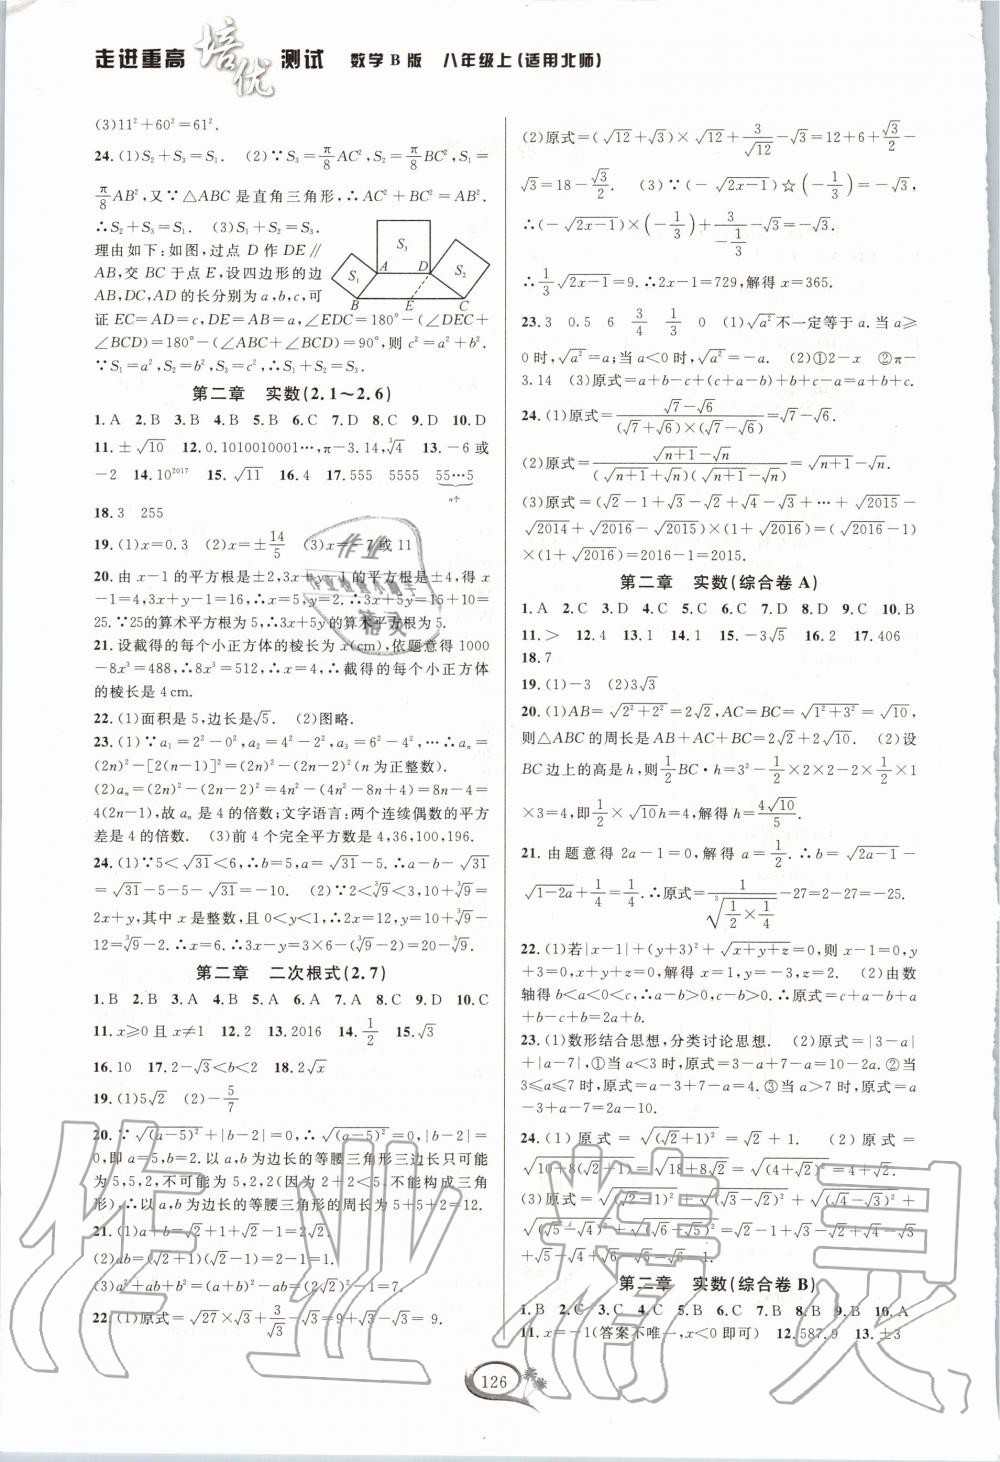 走进重高 培优 测试 数学B版 八年级上(适用北师)
(3)11²+60²=61².
24.(1)S₂+S₃=S₁. (2)∵S₃=π/8AC²,S₂=π/8BC²,S₁=
π/8AB²,又∵△ABC是直角三角形,∴AC²+BC²=AB².
∴S₂+S₃=S₁. (3)S₁+S₂=S₃.
理由如下:如图,过点D作DE∥
AB,交BC于点E,设四边形的边
AB,DC,AD的长分别为a,b,c,可
证EC=AD=c,DE=AB=a,∠EDC=180°-(∠DEC+
∠BCD)=180°-(∠ABC+∠BCD)=90°,则c²=a²+b².
∵S₁=a²,S₂=b²,S₃=c²,∴S₁+S₂=S₃.
S₁ S₃ S₂ A D B E C
第二章 实数(2.1~2.6)
1.A 2.B 3.B 4.B 5.B 6.D 7.D 8.C 9.D 10.D
11.±√10 12.0.1010010001…,π-3.14,∛4 13.-6或
-2 14.10²⁰¹⁷ 15.√11 16.4 17.555 5555 55…5
n个
18.3 255
19.(1)x=0.3 (2)x=±14/5 (3)x=-7或11
20.由x-1的平方根是±2,3x+y-1的平方根是±4,得x
-1=4,3x+y-1=16.∴x=5,y=2.∴3x+5y=15+10=
25.∵25的算术平方根为5,∴3x+5y的算术平方根为5.
21.设截得的每个小正方体的棱长为x(cm),依题意得1000
-8x³=488,∴8x³=512,∴x=4.∴截得的每个小正方体
的棱长是4cm.
22.(1)面积是5,边长是√5. (2)图略.
23.(1)∵a₁=2²-0²,a₂=4²-2²,a₃=6²-4²,…∴aₙ=
(2n)²-[2(n-1)]²=(2n)²-(2n-2)²(n为正整数).
(2)aₙ=(2n)²-(2n-2)²=4n²-(4n²-8n+4)=8n-4=
4(2n-1),故aₙ是4的倍数;文字语言:两个连续偶数的平方
差是4的倍数. (3)前4个完全平方数是4,36,100,196.
24.(1)∵5<√31<6,∴b=5,a=√31-5.∴a-b-√31
=√31-5-5-√31=-10. (2)∵2<∛9<3,10+∛9=
2x+y,其中x是整数,0<y<1,∴2x=12,y=10+∛9-
12=∛9-2.∴x=6.∴3x-y=3×6-(∛9-2)=20-∛9.
第二章 二次根式(2.7)
1.B 2.B 3.A 4.B 5.C 6.A 7.A 8.C 9.D 10.C
11.x≥0且x≠1 12.2 13.2016 14.1/2 15.√3
16.10 17.2-√3<b<2 18.2√3
19.(1)5√2 (2)-5/7
20.∵√(a-5)²+|b-2|=0,∴√(a-5)²=0,|b-2|=
0,即a=5,b=2.以a,b为边长的等腰三角形三边长只可能
为5,5,2,不可能为5,2,2(因为2+2<5,不能构成三角
形),∴以a,b为边长的等腰三角形的周长为5+5+2=12.
21.(1)a+b=√2+1+√2-1=2√2.
(2)ab=(√2+1)(√2-1)=2-1=1.
(3)a²+ab+b²=(a+b)²-ab=(2√2)²-1=7.
22.(1)原式=√27×√3+3/√3-√3=9+√3-√3=9.
(2)原式=(√12+√3)×√12+3/√12-√3=12+6+√3/2-
√3=18-√3/2. (3)∵(-√2x-1)☆(-1/3)=-√3,
∴(-√2x-1)×(-1/3)+√3/(-1/3)=-√3.
∴1/3√2x-1=2√3.∴2x-1=729,解得x=365.
23.3 0.5 6 3/4 1/3 0 (1)√a²不一定等于a.当a≥
0时,√a²=a;当a<0时,√a²=-a. (2)①2-x ②π-
3.14 (3)原式=a+b+c-(a+b)+b+c-a=b+2c-a.
24.(1)原式=(√7-√6)/((√7+√6)×(√7-√6))=√7-√6.
(2)原式=(√n+1-√n)/((√n+1+√n)(√n+1-√n))=√n+1-√n.
(3)原式=(√2-1+√3-√2+√4-√3+…+√2015-
√2014+√2016-√2015)×(1+√2016)=(√2016-1)
×(1+√2016)=2016-1=2015.
第二章 实数(综合卷A)
1.A 2.C 3.D 4.C 5.D 6.C 7.D 8.D 9.C 10.B
11.> 12.4 13.1 14.1 15.-3√5 16.2 17.406
18.7
19.(1)-3 (2)3√3
20.(1)AB=√2²+2²=2√2,AC=BC=√1²+3²=√10,
则△ABC的周长是AB+AC+BC=2√2+2√10. (2)设
BC边上的高是h,则1/2BC·h=3²-1/2×2×2-2×1/2×1
×3=4,即1/2×√10h=4,解得h=4√10/5.
21.由题意得2a-1=0,解得a=1/2.∴b=√2a-1-
√1-2a+1/4=1/4.∴原式=1/∛(1/2×1/4)-27=2-27=-25.
22.(1)若|x-1|+(y+3)²+√x+y+z=0,则x-1=0,y
+3=0,x+y+z=0.解得x=1,y=-3,z=2. (2)由数
轴得b<a<0<c,∴a-b>0,a+b<0.∴原式=c+a-b+a
+b-c=2a+b.
23.(1)数形结合思想,分类讨论思想. (2)原式=|3-a|
+|a-7|,①当a<3时,原式=3-a+7-a=10-2a.②当
3≤a≤7时,原式=a-3+7-a=4.③当a>7时,原式=a
-3+a-7=2a-10.
24.(1)原式=√(√2+1)²=√2+1. (2)原式=
√10+8(√2+1)=√18+8√2=√(4+√2)²=4+√2.
(3)原式=√(√2-1)²+√(√3-√2)²+√(√4-√3)²+
√(√5-√4)²+√(√6-√5)²=√2-1+√3-√2+√4-√3+
√5-√4+√6-√5=√6-1.
第二章 实数(综合卷B)
1.B 2.C 3.C 4.C 5.B 6.A 7.B 8.B 9.B 10.A
11.x=-1(答案不唯一,x<0即可) 12.587.9 13.±3
126
作业精灵